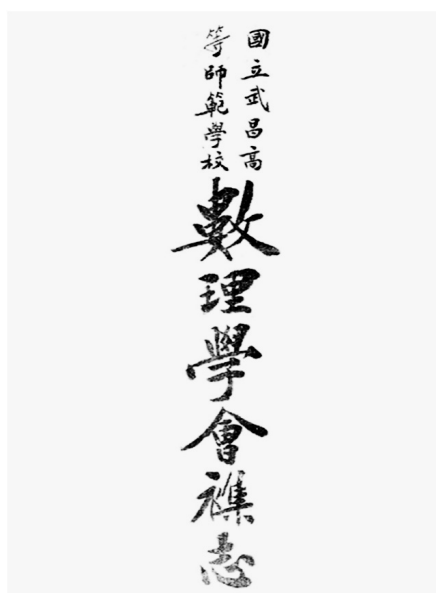 國立武昌高
等師範學校
數理學會襍志